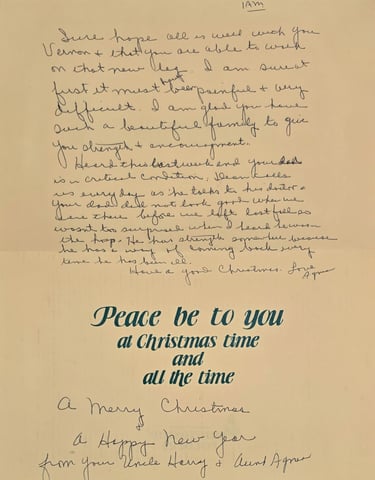 1AM
Sure hope all is well with you
Vernon & that you are able to walk
on that new leg. I am sure at
first it must not be painful & very
difficult. I am glad you have
such a beautiful family to give
you strength & encouragement.
Heard this last week end your dad
is in critical condition. Dean calls
us every day as he talks to his doctor &
your dad did not look good when we
were there before we left last fall so
wasn't too surprised when I heard he was in
the hosp. He has strength somewhere because
he has a way of coming back every
time he has been ill.
Have a good Christmas. Love
Agnes
Peace be to you
at Christmas time
and
all the time
A Merry Christmas
&
A Happy New Year
from your Uncle Harry & Aunt Agnes